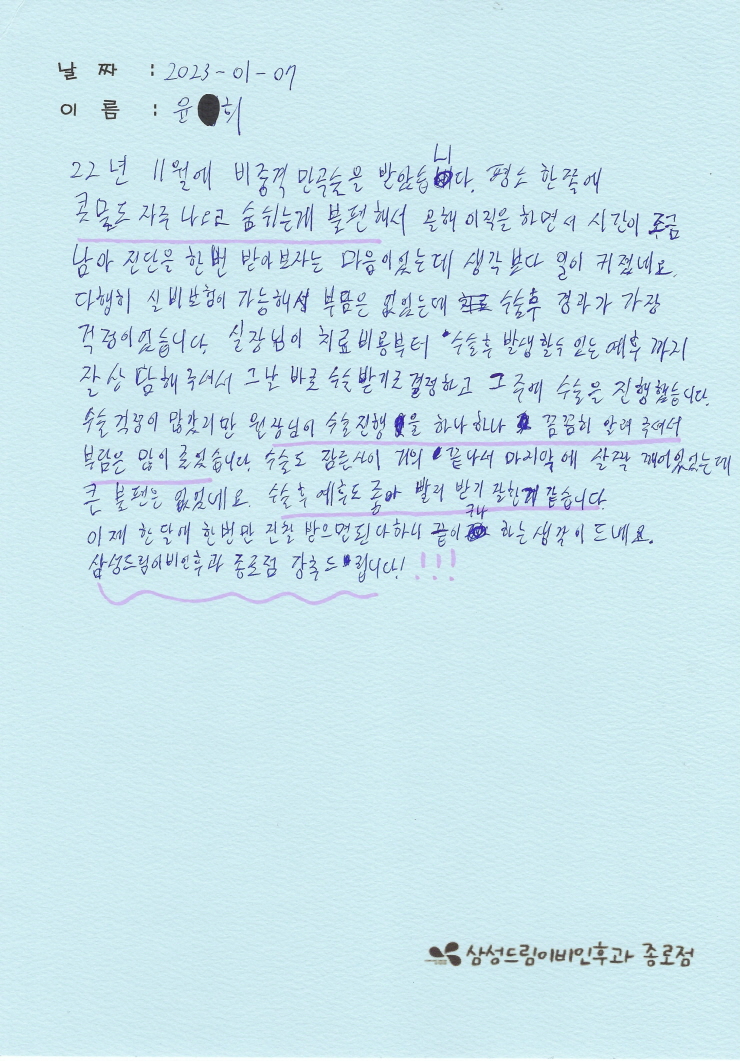 날 짜 : 2023-01-07
이 름 : 윤 희
22년 11월에 비중격 만곡술을 받았습니다. 평소 한쪽에
콧물도 자주 나오고 숨쉬는게 불편해서 올해 이직을 하면서 시간이 조금
남아 진단을 한번 받아보자는 마음이었는데 생각보다 일이 커졌네요.
다행히 실비보험이 가능해서 부담은 없었는데 수술후 경과가 가장
걱정이었습니다. 실장님이 치료비용부터 수술후 발생할수 있는 예후 까지
잘 상담해 주셔서 그날 바로 수술받기로 결정하고 그 주에 수술을 진행했습니다.
수술 걱정이 많았지만 원장님이 수술진행을 하나하나 꼼꼼히 알려 주셔서
부담은 많이 줄었습니다. 수술도 잠든사이 거의 끝나서 마지막에 살짝 깨어있었는데
큰 불편은 없었네요. 수술후 예후도 좋아 빨리 받기 잘한거 같습니다.
이제 한달에 한번만 진찰 받으면 된다하니 끝이구나 하는 생각이 드네요.
삼성드림이비인후과 종로점 강추드립니다! !!!
삼성드림이비인후과 종로점